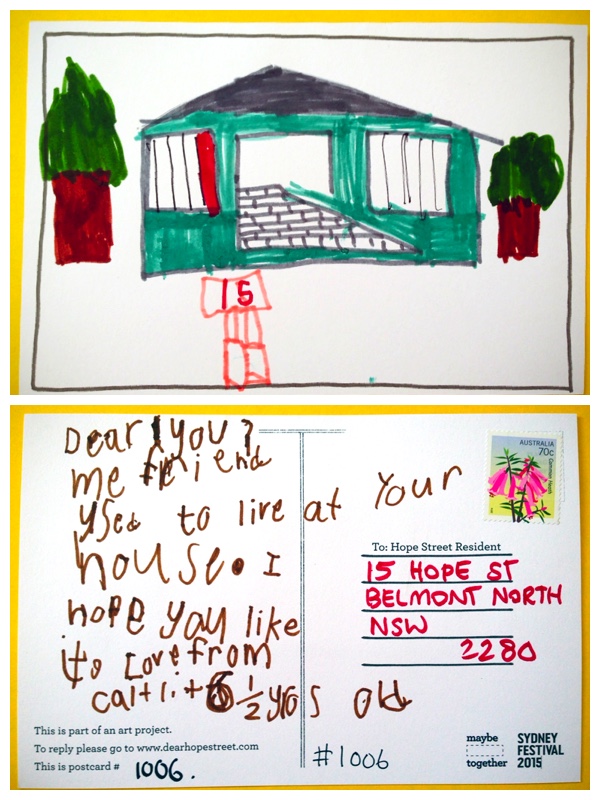 15
Dear you?
me friend
used to live at Your
house. I
hope you like
it. Love from
caitlit 6 1/2 yrs old
This is part of an art project.
To reply please go to www.dearhopestreet.com
This is postcard # 1006.
#1006
AUSTRALIA
70c
Common Heath
To: Hope Street Resident
15 HOPE ST
BELMONT NORTH
NSW
2280
maybe
together
SYDNEY
FESTIVAL
2015